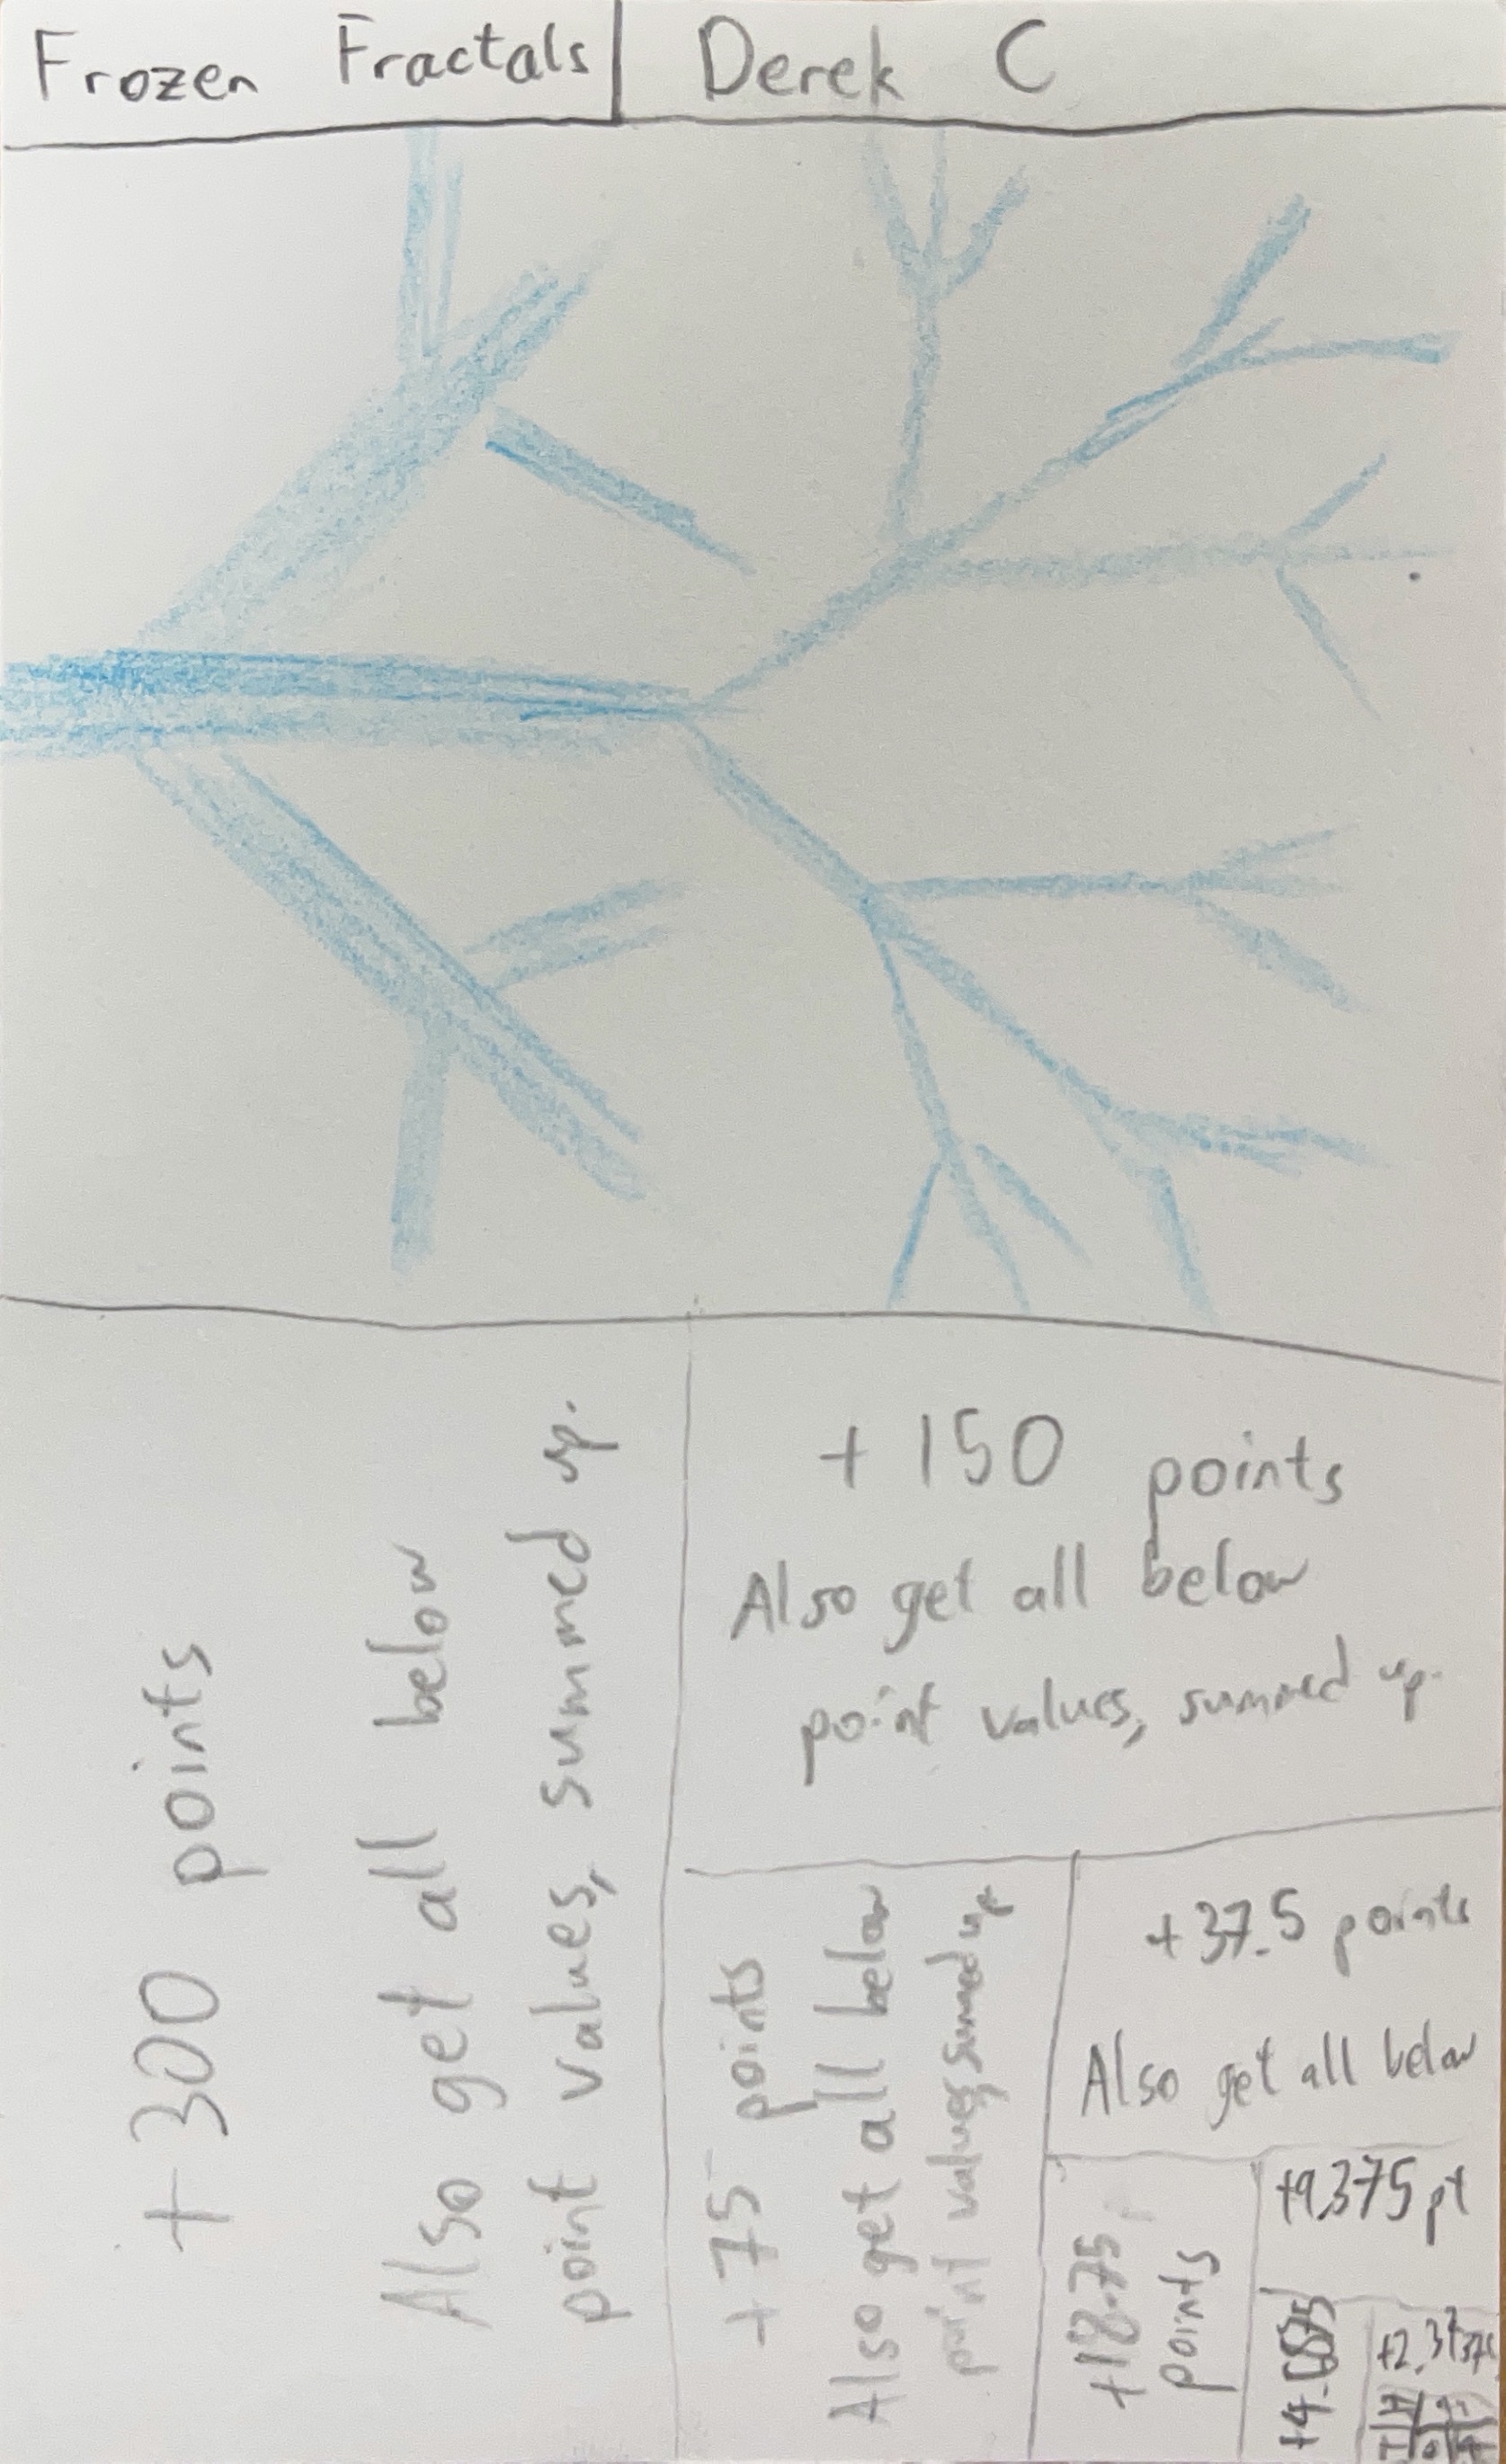 Frozen Fractals
Derek C
+300 points
Also get all below
point values, summed up.
+150 points
Also get all below
point values, summed up.
+75 points
Also get all below
point values, summed up
+37.5 points
Also get all below
+18.75
points
+9.375 pt
+2.34375